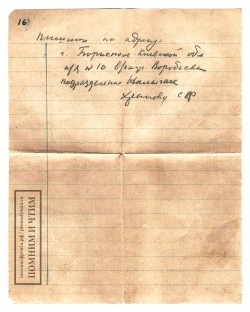 16
пишите по адресу:
г. Борисполь Киевской обл
п/я № 10 врачу Воробьева
подразделение
Храпову С Ф
ПОМНИМ И ЧТИМ